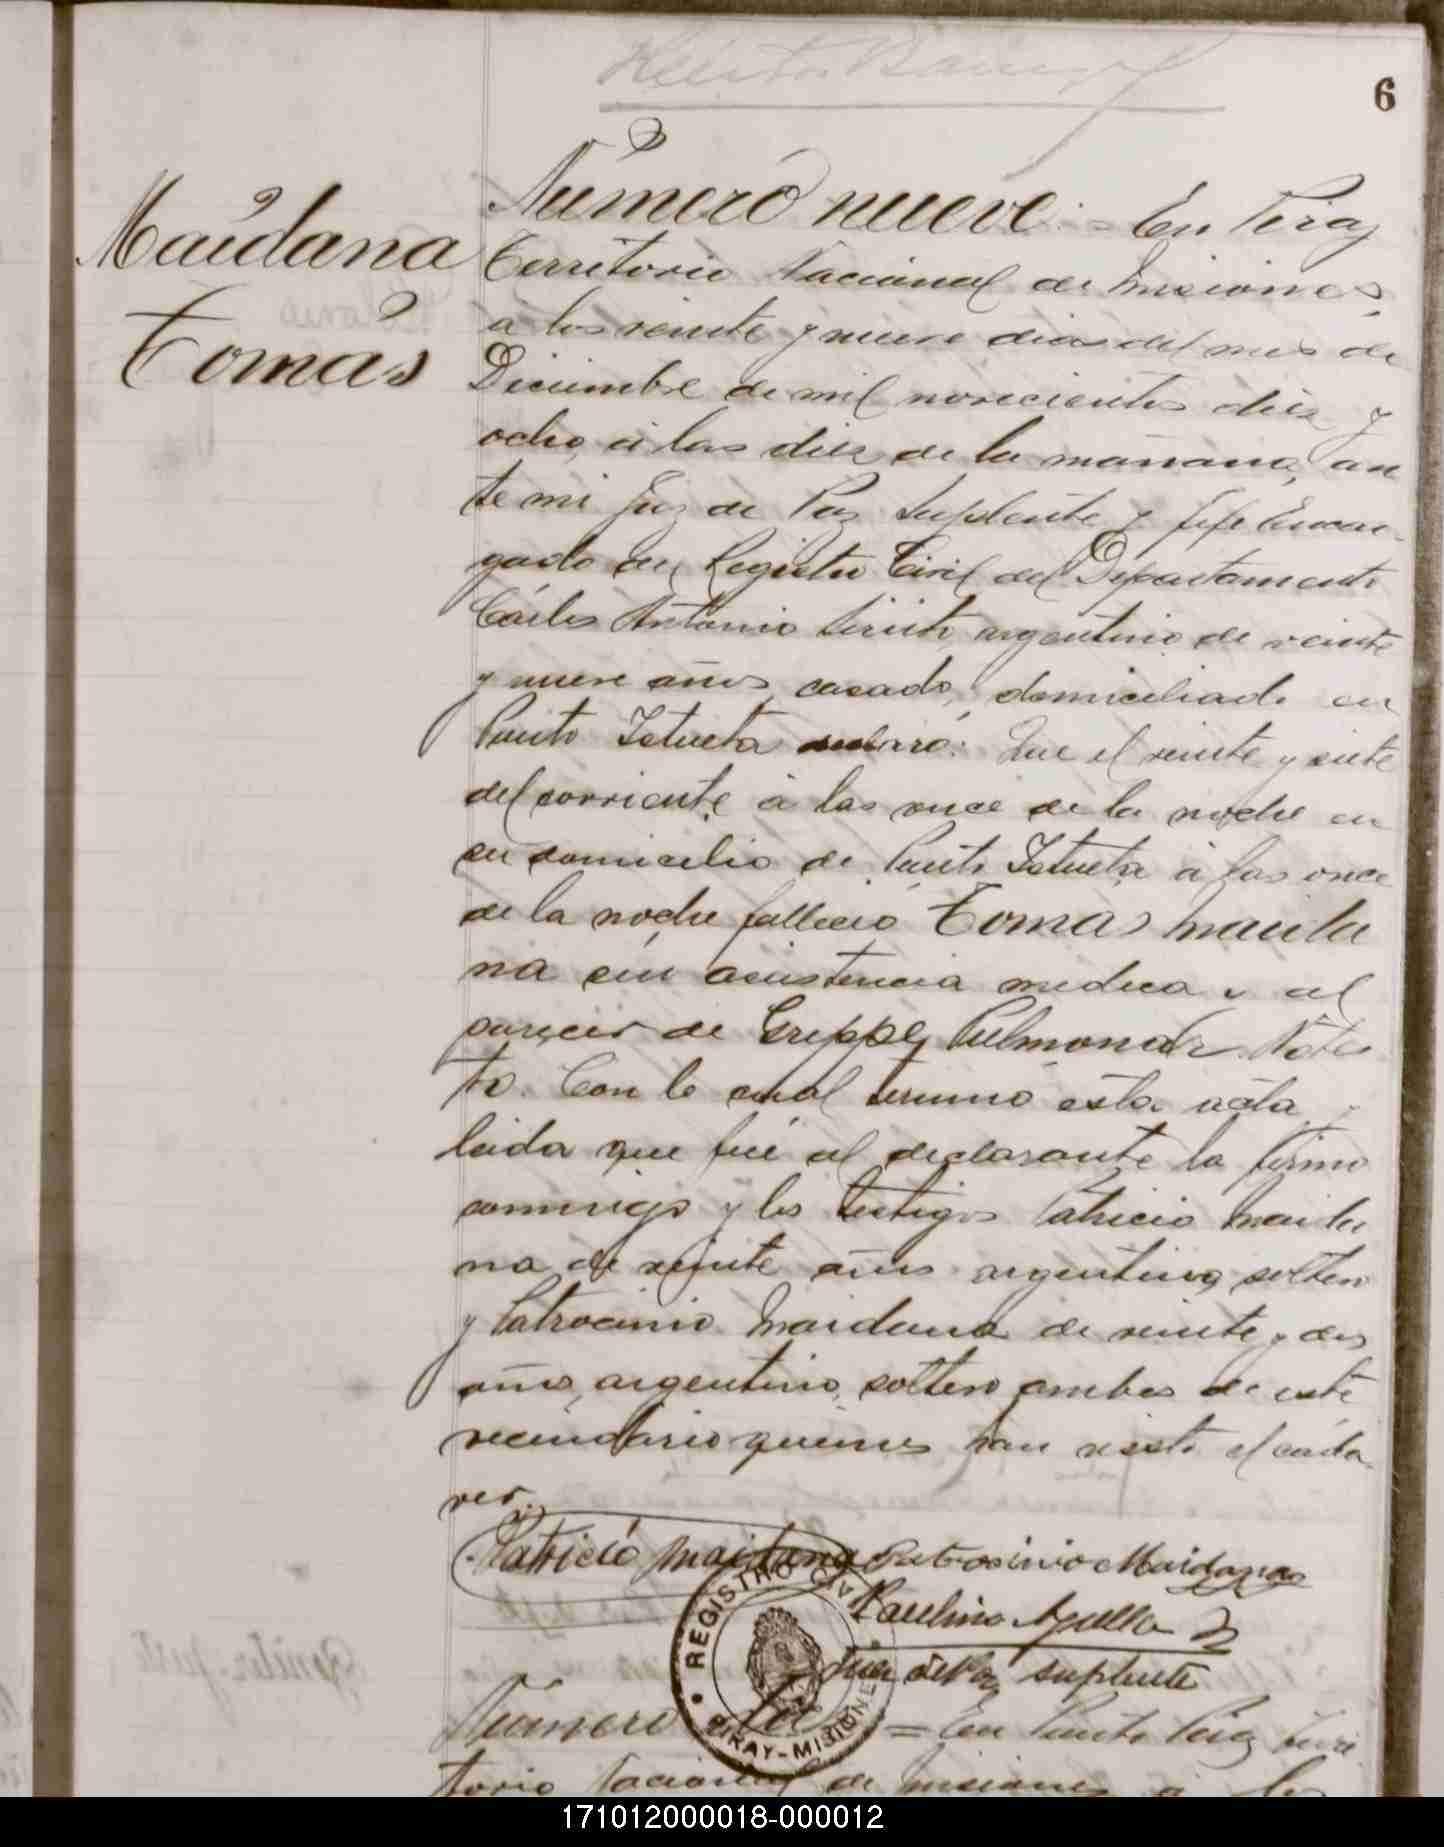 6
Maidana
Tomás
Número nueve = En Piray
Territorio Nacional de Misiones
a los veinte y nueve dias del mes de
Diciembre de mil novecientos diez y
ocho, á las diez de la mañana, an
te mi Juez de Paz Suplente y Jefe Encar-
gado del Registro Civil del Departamento
Cárlos Antonio argentino de veinte
y nueve años, casado, domiciliado en
Puerto Istueta declaró: Que el veinte y siete
del corriente á las once de la noche en
su domicilio de Puerto Istueta á las once
de la noche falleció Tomas Maida
na sin asistencia médica y al
parecer de Grippe Pulmonar
to. Con lo cual terminó esta acta
leida que fué al declarante la firmó
conmigo y los testigos Patricio Maida
na de veinte años argentino, soltero
y Patrocinio Maidana de veinte y dos
años, argentino, soltero, ambos de este
vecindario quienes han visto el cadá-
ver.
Patricio Maidana Patrosinio Maidana
Paulino
Juez de Paz suplente
REGISTRO CIVIL
PIRAY-MISIONES
Número = En Puerto Piray Terri
torio Nacional de Misiones á los
171012000018-000012